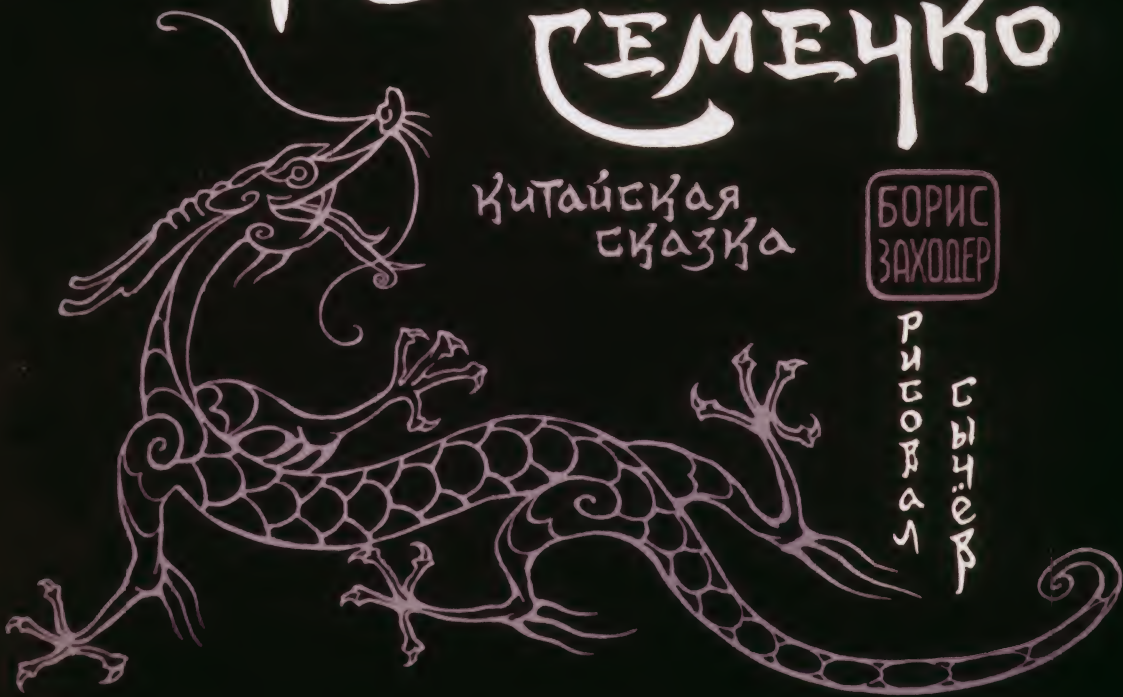 Семечко
китайская
сказка
БОРИС
ЗАХОДЕР
рисовал
сычёв